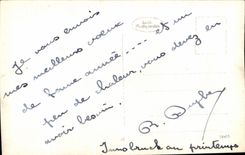 Je vous envois
mes meilleurs vœux
de bonne année ---- et un
peu de chaleur, vous devez en
avoir besoin.
R.
Innsbruck au printemps